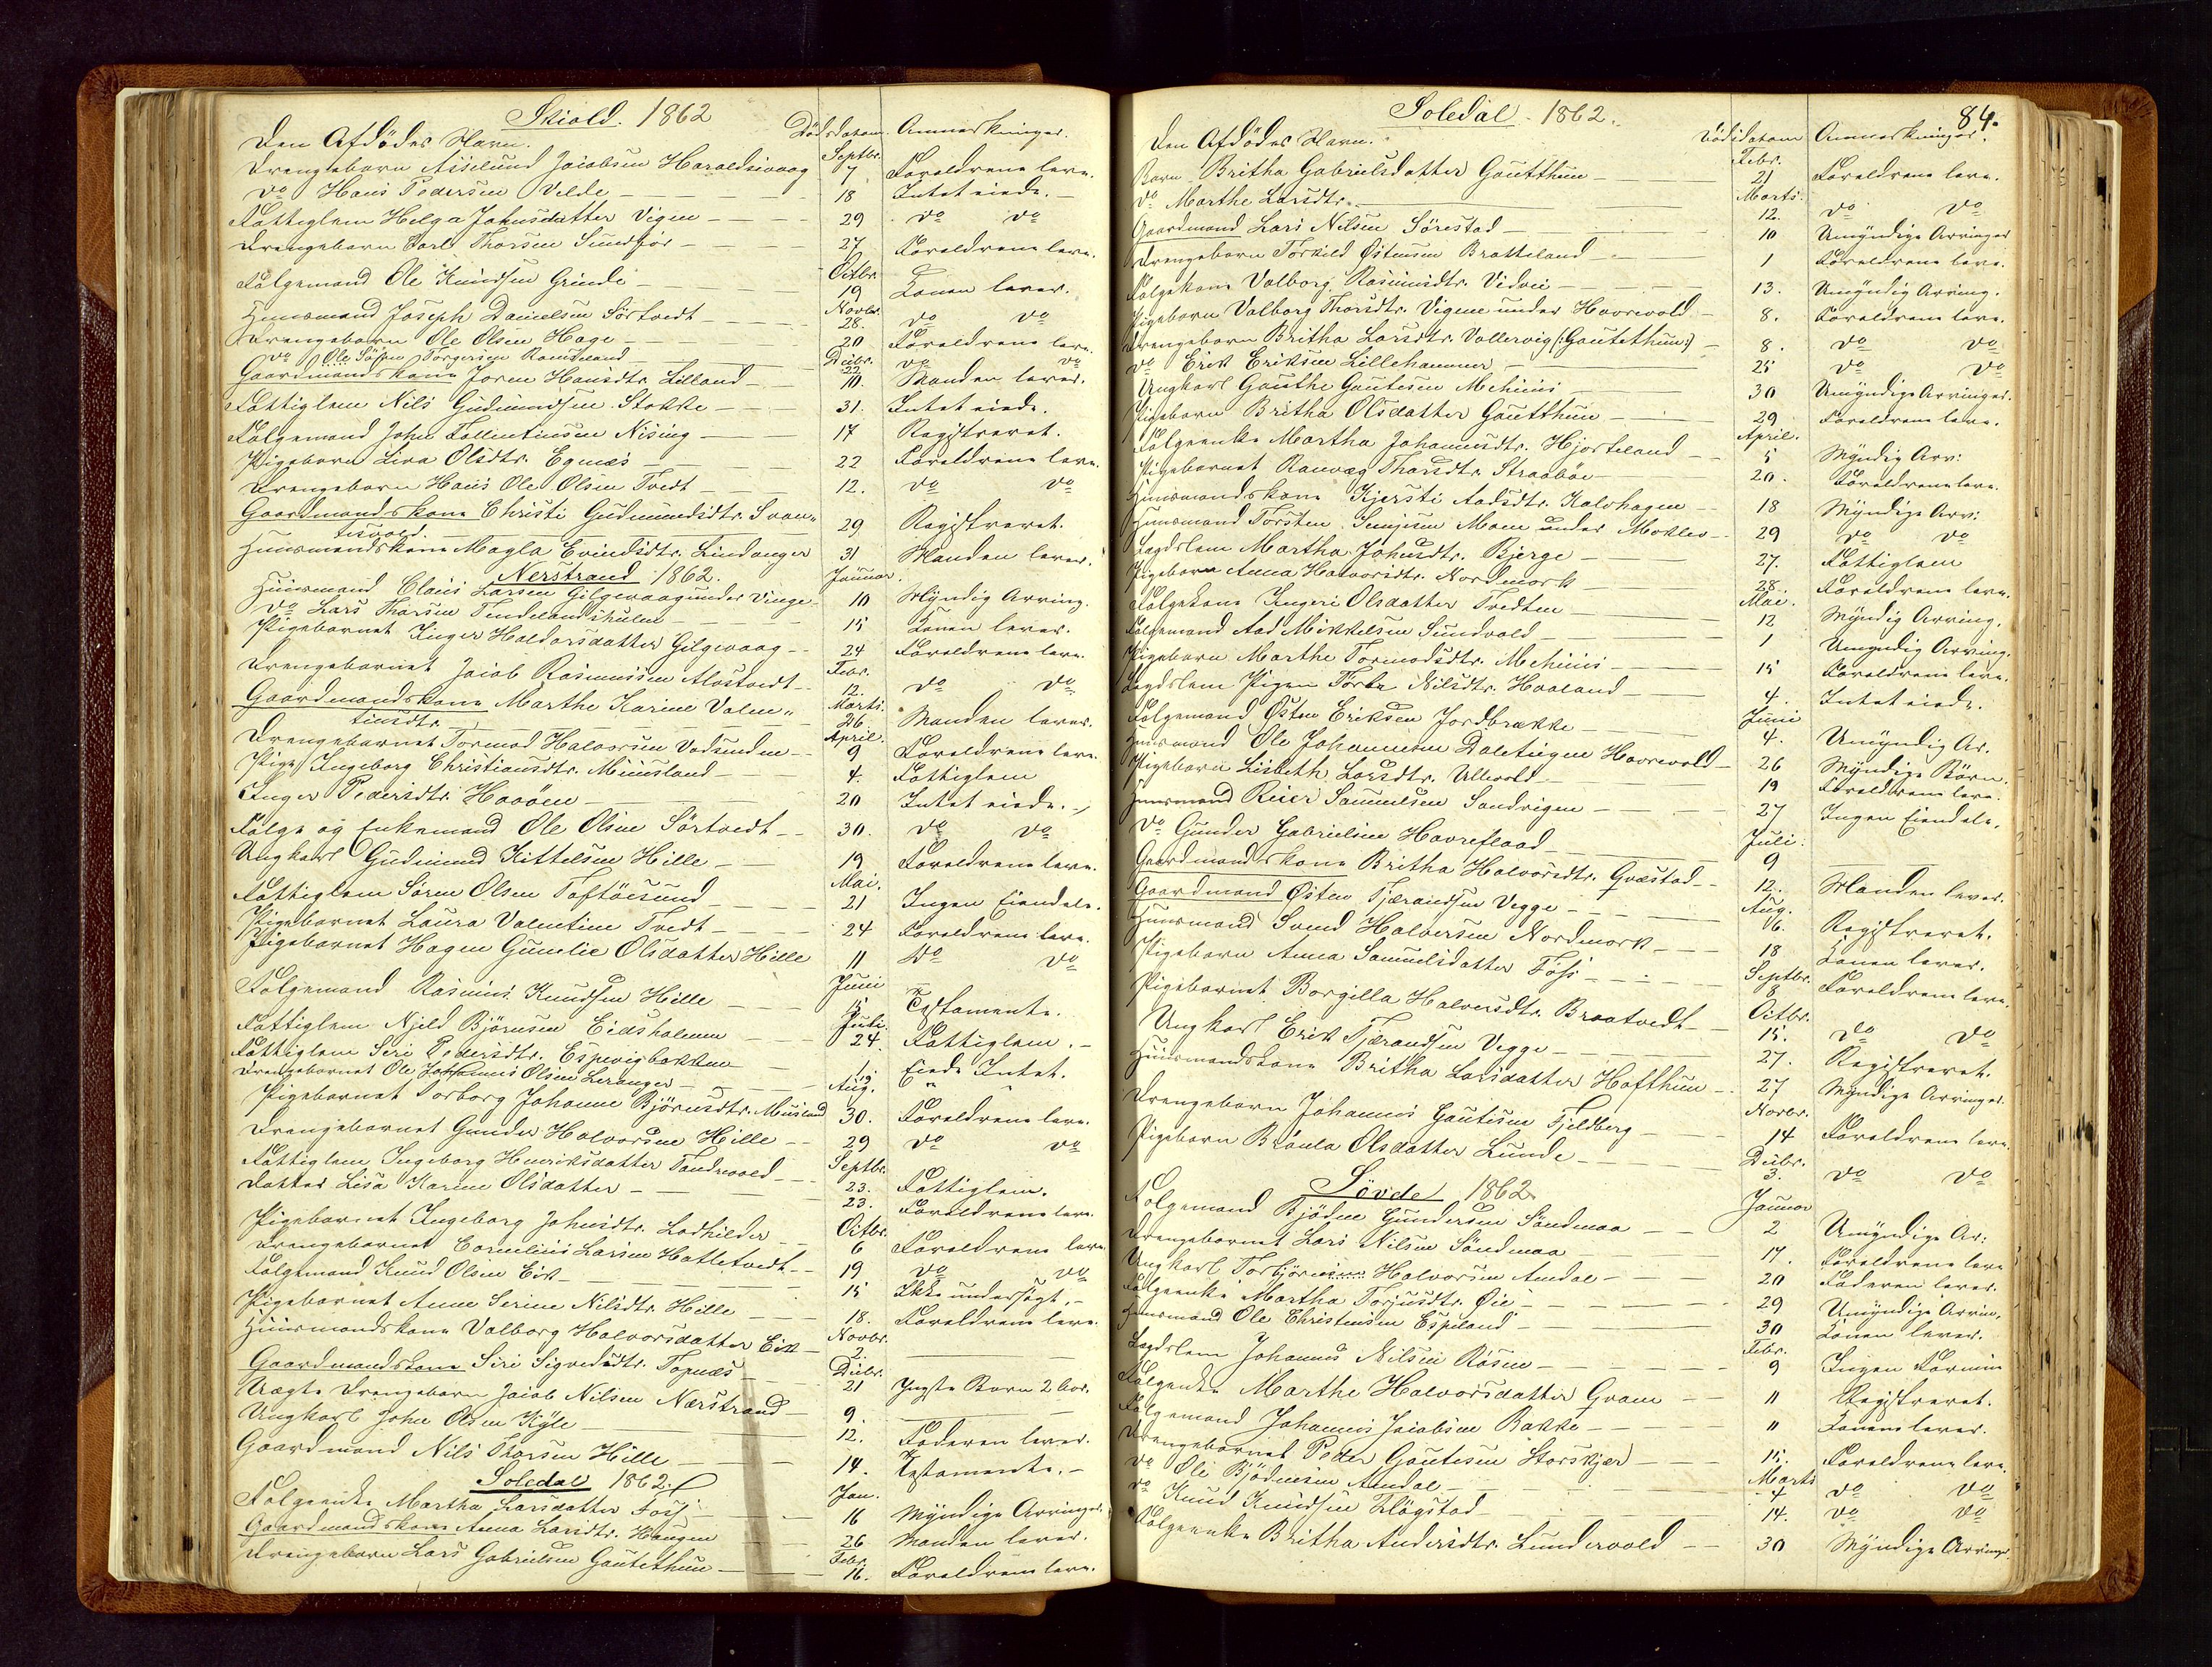 Skiold. 1862
Den Afdødes Navn. Dødsdatum. Anmærkninger.
Septbr.
Drengebarn Asselund Jacobsen Haraldsivaag 7 Forældrene leve.
do Hans Pedersen Velde 18 Intet eiede.
Fattiglem Helga Johnsdatter Vigen 29 do do
Drengebarn Carl Thorsen Sundfør 27 Forældrene leve.
Octbr.
Følgemand Ole Knudsen Grinde 19 Konen lever.
Novbr.
Huusmand Joseph Danielsen Sørtvedt 28. do do
Drengebarn Ole Olsen Hage 20 Forældrene leve.
Decbr.
do Ole Torgersen Ramsland 22 do do
Gaardmandskone Joren Hansdtr. Lilland 10. Manden lever.
Fattiglem Nils Gudmundsen Stokke 31. Intet eiede.
Følgemand John Tollentinsen Nising 17 Registreret.
Pigebarn Liva Olsdtr. Egenæs 22 Forældrene leve.
Drengebarn Hans Ole Olsen Tvedt 12. do do
Gaardmandskone Christi Gudmundsdtr. Svan„
tesvold. 29 Registreret.
Huusmandskone Magla Evindsdtr. Lindanger 31 Manden lever.
Nerstrand 1862.
Januar.
Huusmand Claus Larsen Gilgevaag under Vinge 10 Myndig Arving.
do Lars Thorsen Tindelandshulen 15 Konen lever.
Pigebarnet Inger Haldorsdatter Gilgevaag 24 Forældrene leve.
Febr.
Drengebarnet Jacob Rasmussen Alvstvedt 12. do do
Marts.
Gaardmandskone Marthe Karine Valen„
tinsdtr. 26. Manden lever.
April.
Drengebarnet Tormod Halvorsen Vadsenden 9 Forældrene leve.
Pige Ingeborg Christiansdtr. Muusland 4. Fattiglem
Inger Pedersdtr. Haaøen 20 Intet eiede.
Følge og Enkemand Ole Olsen Sørtvedt 30. do do
Ungkarl Gudmund Kittelsen Hille 19 Forældrene leve.
Mai.
Fattiglem Søren Olsen Toftøesund 21 Ingen Eiendele.
Pigebarnet Laura Valentine Tvedt 24 Forældrene leve.
Pigebarnet Hagen Gunelie Olsdatter Hille 11 do do
Juni
Følgemand Rasmus Knudsen Hille 15 Testamente.
Juli.
Fattiglem Njeld Bjørnsen Eidsholmen 24. Fattiglem.
Fattiglem Siri Pedersdtr. Espevigbakken 1. Eiede Intet.
Drengebarnet Ole Johannes Olsen Leranger 19
Aug.
Pigebarnet Torborg Johanne Bjørnsdtr. Musland 30. Forældrene leve.
Drengebarnet Gunder Halvorsen Hille 29 do do
Septbr.
Fattiglem Ingeborg Henriksdatter Tandrevold 23. Fattiglem.
Datter Lisa Karine Olsdatter 23. Forældrene leve.
Octbr.
Pigebarnet Ingeborg Johnsdtr. Lodhilder 6 Forældrene leve.
Drengebarnet Cornelius Larsen Hatletvedt 19 do do
Følgemand Knud Olsen Eik 15 Ikke undersøgt.
Pigebarnet Anne Serine Nilsdtr. Hille 18. Forældrene leve.
Novbr.
Huusmandskone Valborg Halvorsdatter Eik 2.
Decbr.
Gaardmandskone Siri Sigvedsdtr. Tognæs 21 Yngste Barn 2 Aar.
Uægte Drengebarn Jacob Nilsen Nærstrand 9.
Ungkarl John Olsen Kyle 12. Faderen lever.
Gaardmand Nils Thorsen Hille 14. Testamente.
Soledal 1862.
Jan.
Følgeenke Martha Larsdatter Foss 16 Myndige Arvinger.
Gaardmandskone Anna Larsdtr. Haugen 26 Manden lever.
Febr.
Drengebarn Lars Gabrielsen Gautethun 16. Forældrene leve.
Soledal 1862.
84.
Den Afdødes Navn. Dødsdatum Anmærkninger.
Febr.
Barn Britha Gabrielsdatter Gautthun 21 Forældrene leve.
Marts.
do Marthe Larsdtr. 12. do do
Gaardmand Lars Nilsen Sørestad 10 Umyndige Arvinger
Drengebarn Torkild Østensen Bratteland 1 Forældrene leve.
Følgekone Valborg Rasmusdtr. Vidvei 13. Umyndig Arving.
Pigebarn Valborg Thorsdtr. Vigene under Havrevold 8. Forældrene leve.
Drengebarn Britha Larsdtr. Vallervig (:Gautethun:) 8. do do
do Erik Eriksen Lillehammer 25 do do
Ungkarl Gauthe Gautesen Mehuus 30 Umyndige Arvinger.
Pigebarn Britha Olsdatter Gautthun 29 Forældrene leve.
April.
Følgeenke Martha Johannesdtr. Hjorteland 5 Myndig Arv:
Pigebarnet Ranvæg Thorsdtr. Straabøe 20. Forældrene leve.
Huusmandskone Kjersti Aadsdtr. Kalvhagen 18 Myndige Arv:
Huusmand Torsten Simjesen Moen under Mokleo 29 do do
Lægdslem Martha Johnsdtr. Bjerge 27. Fattiglem
Pigebarn Anna Halvorsdtr. Nordmork 28. Forældrene leve.
Mai.
Følgekone Ingeri Olsdatter Tvedten 12 Myndig Arving.
Følgemand Aad Mikkelsen Sundvold 1 Umyndig Arving.
Pigebarn Marthe Tormodsdtr. Mehuus 15 Forældrene leve.
Lægdslem Pigen Torbr Nilsdtr. Haaland 4. Intet eiede.
Juni
Følgemand Østen Eriksen Jordbrække 4. Umyndig Ar.
Huusmand Ole Johannesen Daletiegen Havrevold 26 Myndige Børn.
Pigebarn Lisbeth Larsdtr. Ullevold 19 Forældrene leve.
Huusmand Reier Samuelsen Sandvigen 27 Ingen Eiendele.
Juli.
do Gunder Gabrielsen Havreflaad 9
Gaardmandskone Britha Halvorsdtr. Gvæstad 12. Manden lever.
Aug.
Gaardmand Østen Tjærandsen Vegge 6. Registreret.
Huusmand Svend Halversen Nordmork 18 Konen lever.
Septbr.
Pigebarn Anna Samuelsdatter Foss 8 Forældrene leve.
Octbr.
Pigebarnet Borgilla Halversdtr. Braatvedt 15. do do
Ungkarl Erik Tjærandsen Vegge 27. Registreret.
Huusmandskone Britha Larsdatter Hoftthun 27 Myndige Arvinger.
Novbr.
Drengebarn Johannes Gautesen Fjeldberg 14 Forældrene leve
Decbr.
Pigebarn Braula Olsdatter Lunde 3. do do
Søvde 1862.
Januar
Følgemand Bjødne Gundersen Søndenaa 2 Umyndige Ar:
Drengebarnet Lars Nilsen Søndenaa 17. Forældrene leve
Ungkarl Torbjørnsen Halvorsen Amdal 20 Faderen lever.
Følgeenke Martha Torjusdtr. Øie 29 Umyndige Arvin.
Huusmand Ole Christensen Espeland 30 Konen lever.
Febr.
Lægdslem Johannes Nilsen Røsen 9 Ingen Formue
Følgeenke Marthe Halvorsdatter Gvam 11 Registreret.
Følgemand Johannes Jacobsen Bakke 11 Konen lever.
Drengebarnet Peder Gautesen Storskjær 15. Forældrene leve.
Marts
do Ole Bjødnesen Amdal 4 do do
do Knud Knudsen Fløgstad 14. do do
Følgeenke Britha Andersdtr. Lundevold 30 Myndige Arvinger.